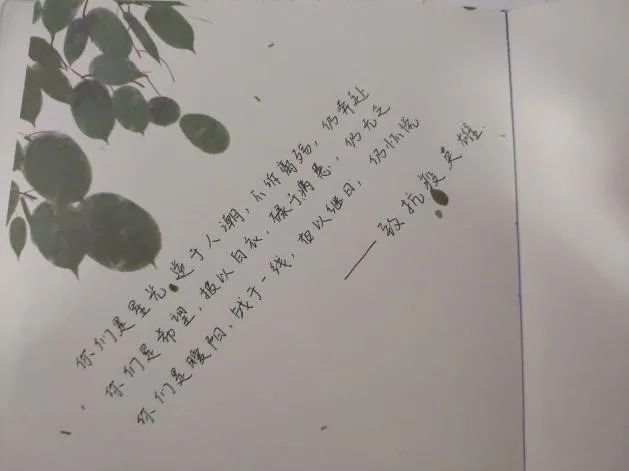 你们是星光,逆于人潮,不惧离殇,仍奔赴
你们是希望,报以白衣,缘于病患,仍无乏
你们是暖阳,战于一线,夜以继日,仍怀悦
——致抗疫英雄